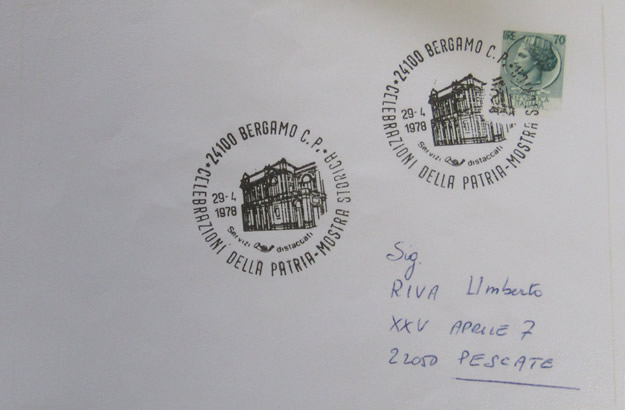 LIRE 70
*24100 BERGAMO C.P.*
29-4
1978
Servizi distaccati
CELEBRAZIONI DELLA PATRIA-MOSTRA STORICA
*24100 BERGAMO C.P.*
29-4
1978
Servizi distaccati
CELEBRAZIONI DELLA PATRIA-MOSTRA STORICA
Sig.
RIVA Umberto
XXV APRILE 7
22050 PESCATE